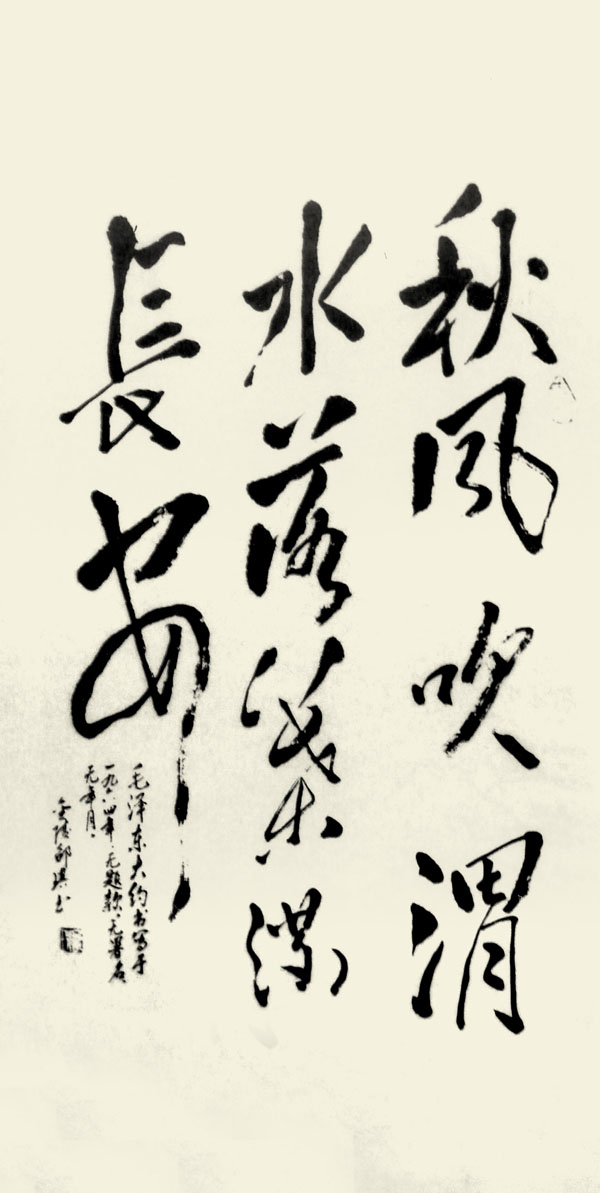 秋风吹渭
水落葉满
長安
毛泽东大约书写于
一九六四年，无题款，无署名
无年月。
金陵邱书